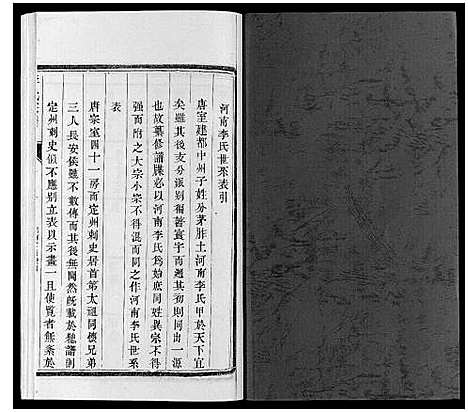 河南李氏世系表引
唐室建都中州子姓分茅胙土河南李氏甲於天下宜
矣雖其後支分派別徧著寰宇而遡其初則同南一源
也故纂修譜牒必以河南李氏為始庶同姓異宗不得
强而附之大宗小宗不得混而同之作河南李氏世系
表
唐宗室四十一房而定州刺史居首第太祖同懷兄弟
三人長安侯雖不數傳而其後無聞然既載於舊譜則
定州刺史似不應別立表以示畫一且使覧者無紊於